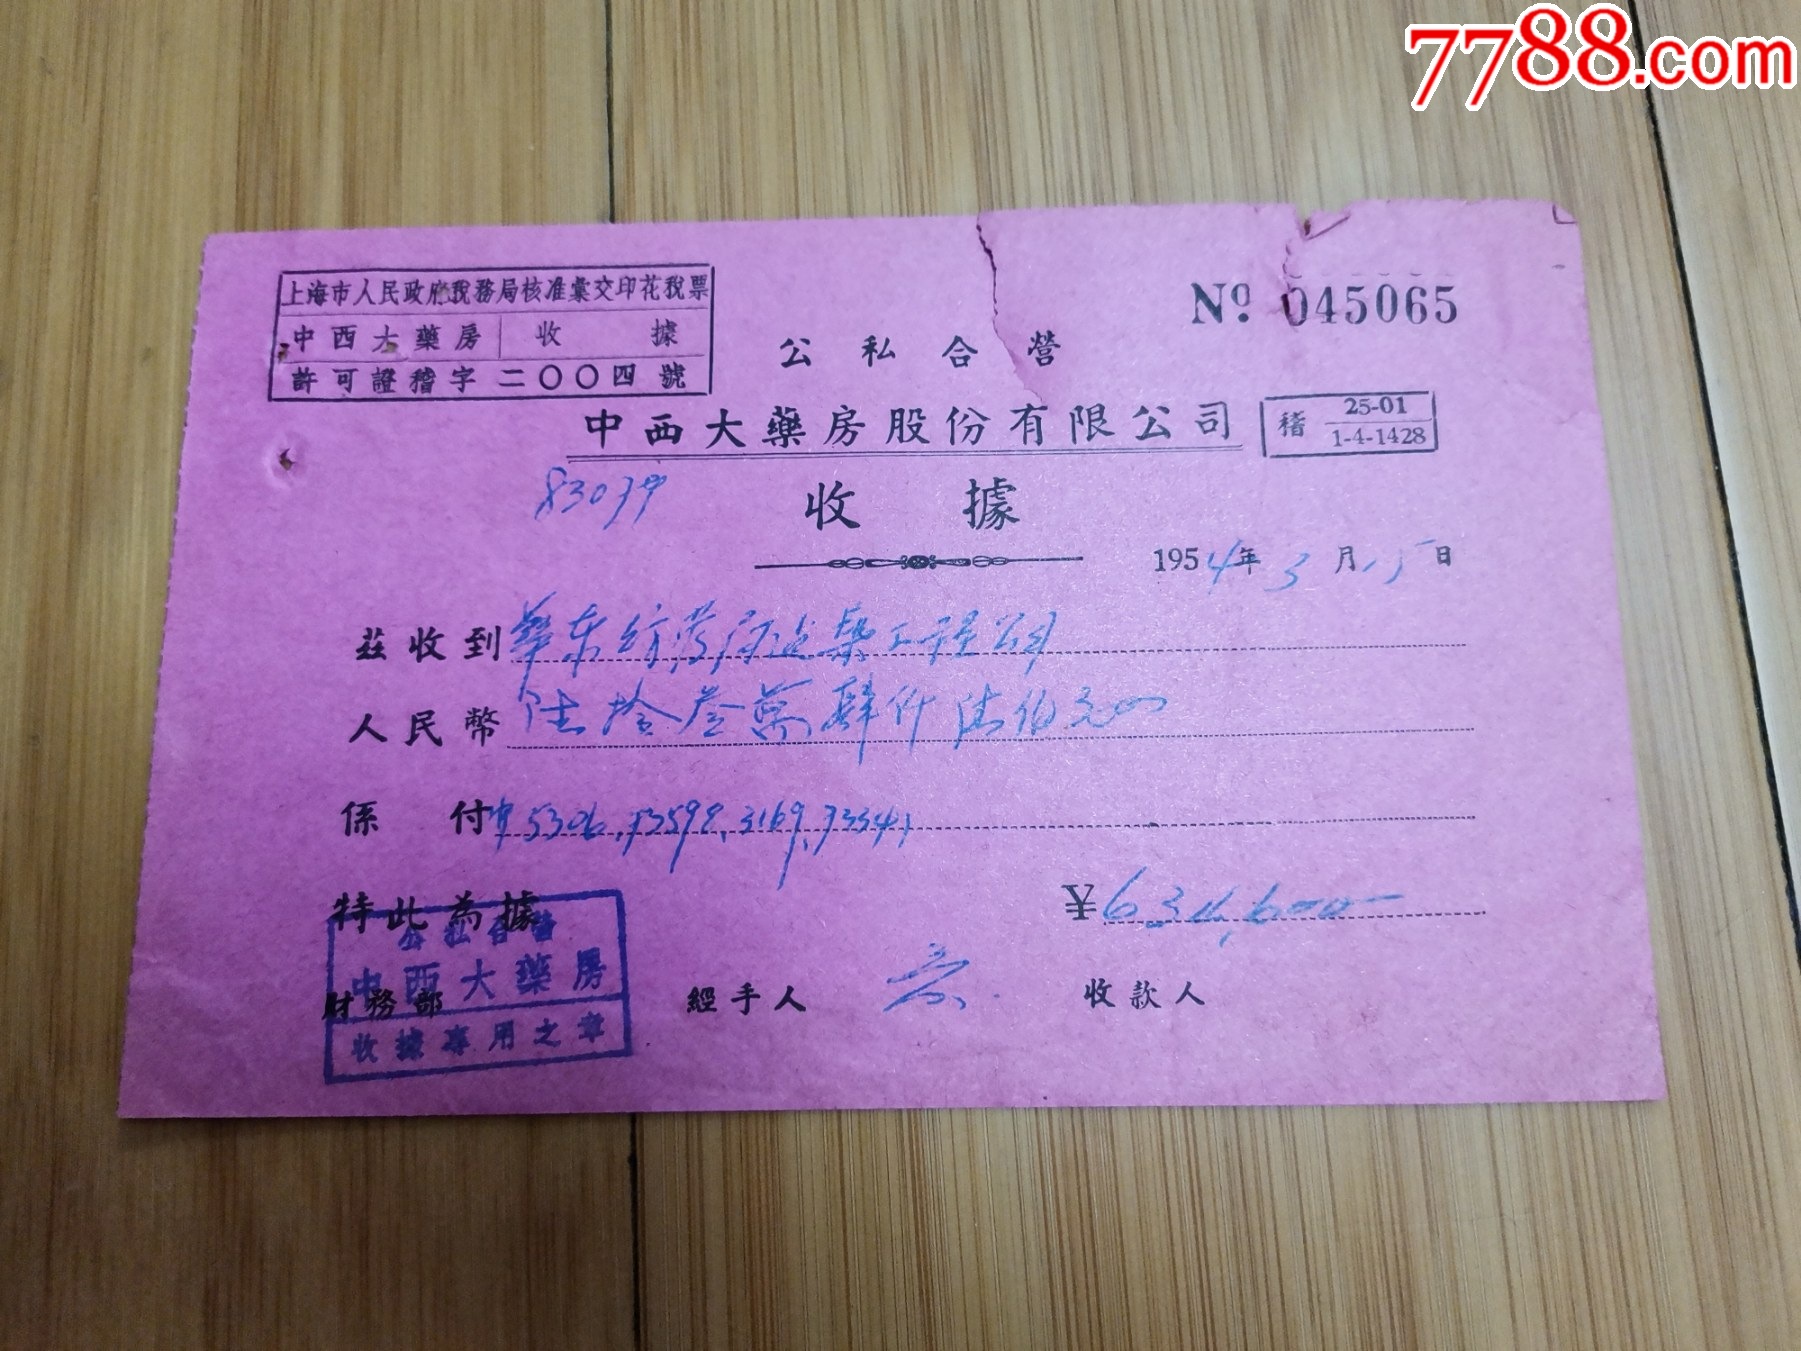 7788.com
上海市人民政府稅務局核准彙交印花稅票
中西大藥房 收據
許可證稽字二〇〇四號
No. 045065
公私合營
中西大藥房股份有限公司
稽 25-01
1-4-1428
收據
1954年3月15日
茲收到華东纺管局建築工程公司
人民幣陸拾叁萬肆仟陸佰元
係付 5306, 13598, 3169, 13341
特此為據
¥634,600
公私合營
中西大藥房
收據專用之章
財務部 經手人 收款人